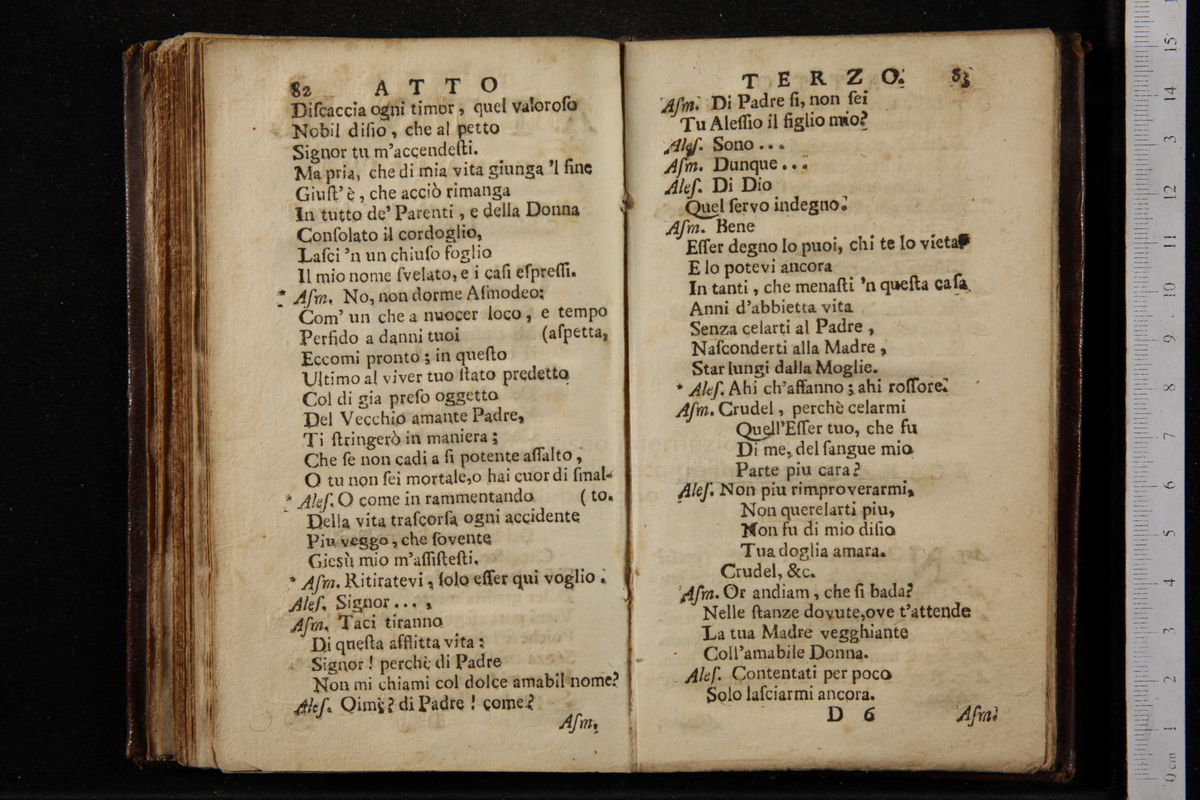 82 ATTO
Diſcaccia ogni timor, quel valoroſo
Nobil diſio, che al petto
Signor tu m'accendeſti.
Ma pria, che di mia vita giunga 'l fine
Giuſt' è, che acciò rimanga
In tutto de' Parenti, e della Donna
Conſolato il cordoglio,
Laſci 'n un chiuſo foglio
Il mio nome ſvelato, e i caſi eſpreſſi.
* Aſm. No, non dorme Aſmodeo:
Com' un che a nuocer loco, e tempo
Perfido a danni tuoi (aſpetta,
Eccomi pronto; in queſto
Ultimo al viver tuo ſtato predetto
Col di gia preſo oggetto
Del Vecchio amante Padre,
Ti ſtringerò in maniera;
Che ſe non cadi a ſi potente aſſalto,
O tu non ſei mortale, o hai cuor di ſmal-
* Aleſ. O come in rammentando (to.
Della vita traſcorſa ogni accidente
Piu veggo, che ſovente
Giesù mio m'aſſiſteſti.
* Aſm. Ritiratevi, ſolo eſſer qui voglio.
Aleſ. Signor...,
Aſm. Taci tiranno
Di queſta afflitta vita:
Signor! perchè di Padre
Non mi chiami col dolce amabil nome?
Aleſ. Oimè? di Padre! come?
Aſm.
TERZO. 83
Aſm. Di Padre ſi, non ſei
Tu Aleſſio il figlio mio?
Aleſ. Sono...
Aſm. Dunque...
Aleſ. Di Dio
Quel ſervo indegno.
Aſm. Bene
Eſſer degno lo puoi, chi te lo vieta?
E lo potevi ancora
In tanti, che menaſti 'n queſta caſa
Anni d'abbietta vita
Senza celarti al Padre,
Naſconderti alla Madre,
Star lungi dalla Moglie.
* Aleſ. Ahi ch'affanno; ahi roſſore.
Aſm. Crudel, perchè celarmi
Quell'Eſſer tuo, che fu
Di me, del ſangue mio
Parte piu cara?
Aleſ. Non piu rimproverarmi,
Non querelarti piu,
Non fu di mio diſio
Tua doglia amara.
Crudel, &c.
Aſm. Or andiam, che ſi bada?
Nelle ſtanze dovute, ove t'attende
La tua Madre vegghiante
Coll'amabile Donna.
Aleſ. Contentati per poco
Solo laſciarmi ancora.
D 6 Aſm.
0 cm 1 2 3 4 5 6 7 8 9 10 11 12 13 14 15